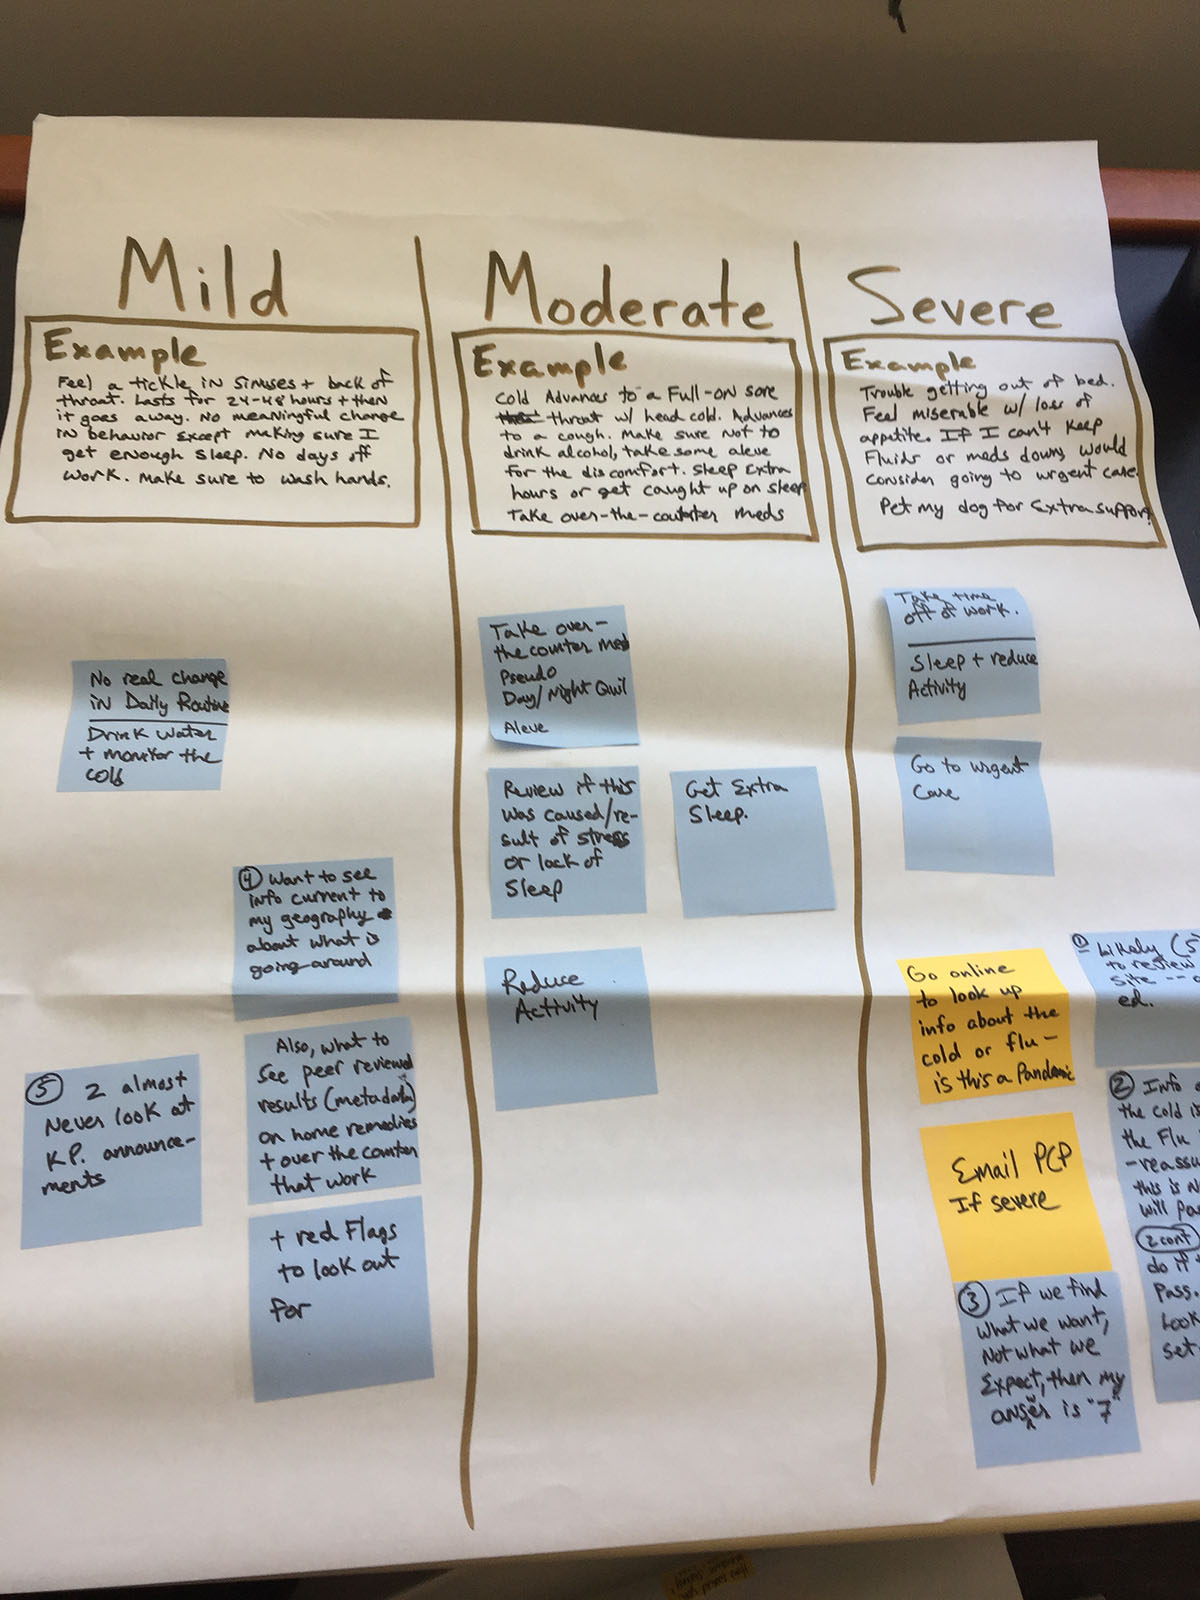 Mild
Example
Feel a tickle in Sinuses + back of
throat. Lasts for 24-48 hours + then
it goes away. No meaningful change
in behavior except making sure I
get enough sleep. No days off
work. Make sure to wash hands.
No real change
in Daily Routine
Drink water
+ monitor the
cold
④ Want to see
info current to
my geography
about what is
going around
Also, what to
see peer reviewed
results (metadata)
on home remedies
+ over the counter
that work
+ red Flags
to look out
for
⑤ 2 almost
Never look at
K.P. announce-
ments
Moderate
Example
Cold Advances to a Full-on sore
throat w/ head cold. Advances
to a cough. Make sure not to
drink alcohol, take some aleve
for the discomfort. Sleep Extra
hours or get caught up on sleep
Take over-the-counter meds
Take over-
the counter med
Pseudo
Day/Night Quil
Aleve
Review if this
was caused/re-
sult of stress
or lack of
Sleep
Get Extra
Sleep.
Reduce
Activity
Severe
Example
Trouble getting out of bed.
Feel miserable w/ loss of
appetite. If I can't keep
Fluids or meds down, would
consider going to urgent care.
Pet my dog for extra support!
Take time
off of work.
Sleep + reduce
Activity
Go to urgent
Care
Go online
to look up
info about the
cold or flu -
is this a Pandemic
① Likely (5
to review
site --
ed.
Email PCP
If severe
② Info
the cold is
the Flu
-reassu
this is N
will pa
2 cont
do if
Pass.
Look
set
③ If we find
what we want,
Not what we
Expect, then my
answer is "7"